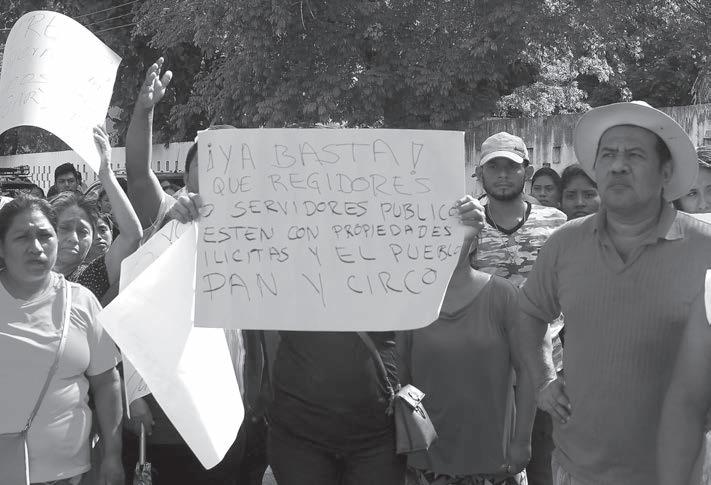 ¡YA BASTA!
QUE REGIDORES
O SERVIDORES PUBLICO
ESTEN CON PROPIEDADES
ILICITAS Y EL PUEBLO
PAN Y CIRCO